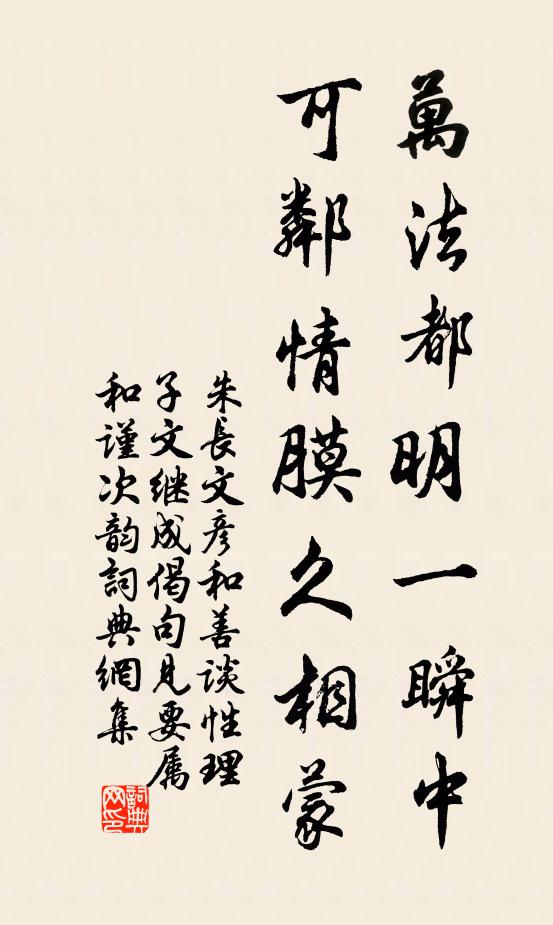 萬法都明一瞬中
可鄰情膜久相蒙
朱長文彦和善谈性理
子文继成偈句見要属
和谨次韵詞典網集
詞典网印